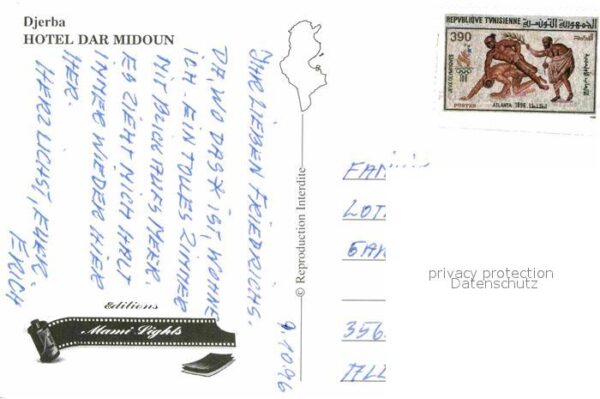 Djerba
HOTEL DAR MIDOUN
IHR LIEBEN FRIEDRICHS.
DA, WO DAS X IST, WOHNE
ICH. EIN TOLLES ZIMMER
MIT BLICK AUFS MEER.
ES ZIEHT MICH HALT
IMMER WIEDER HIER
HER.
HERZLICHST, EUER.
ERICH
9.10.96
© Reproduction Interdite
Editions
Mami Lights
REPVBLIQVE TVNISIENNE
390
JEUX OLYMPIQUES
100
POSTES
ATLANTA 1996
FAM
LOT
GAR
356
ALL
privacy protection
Datenschutz